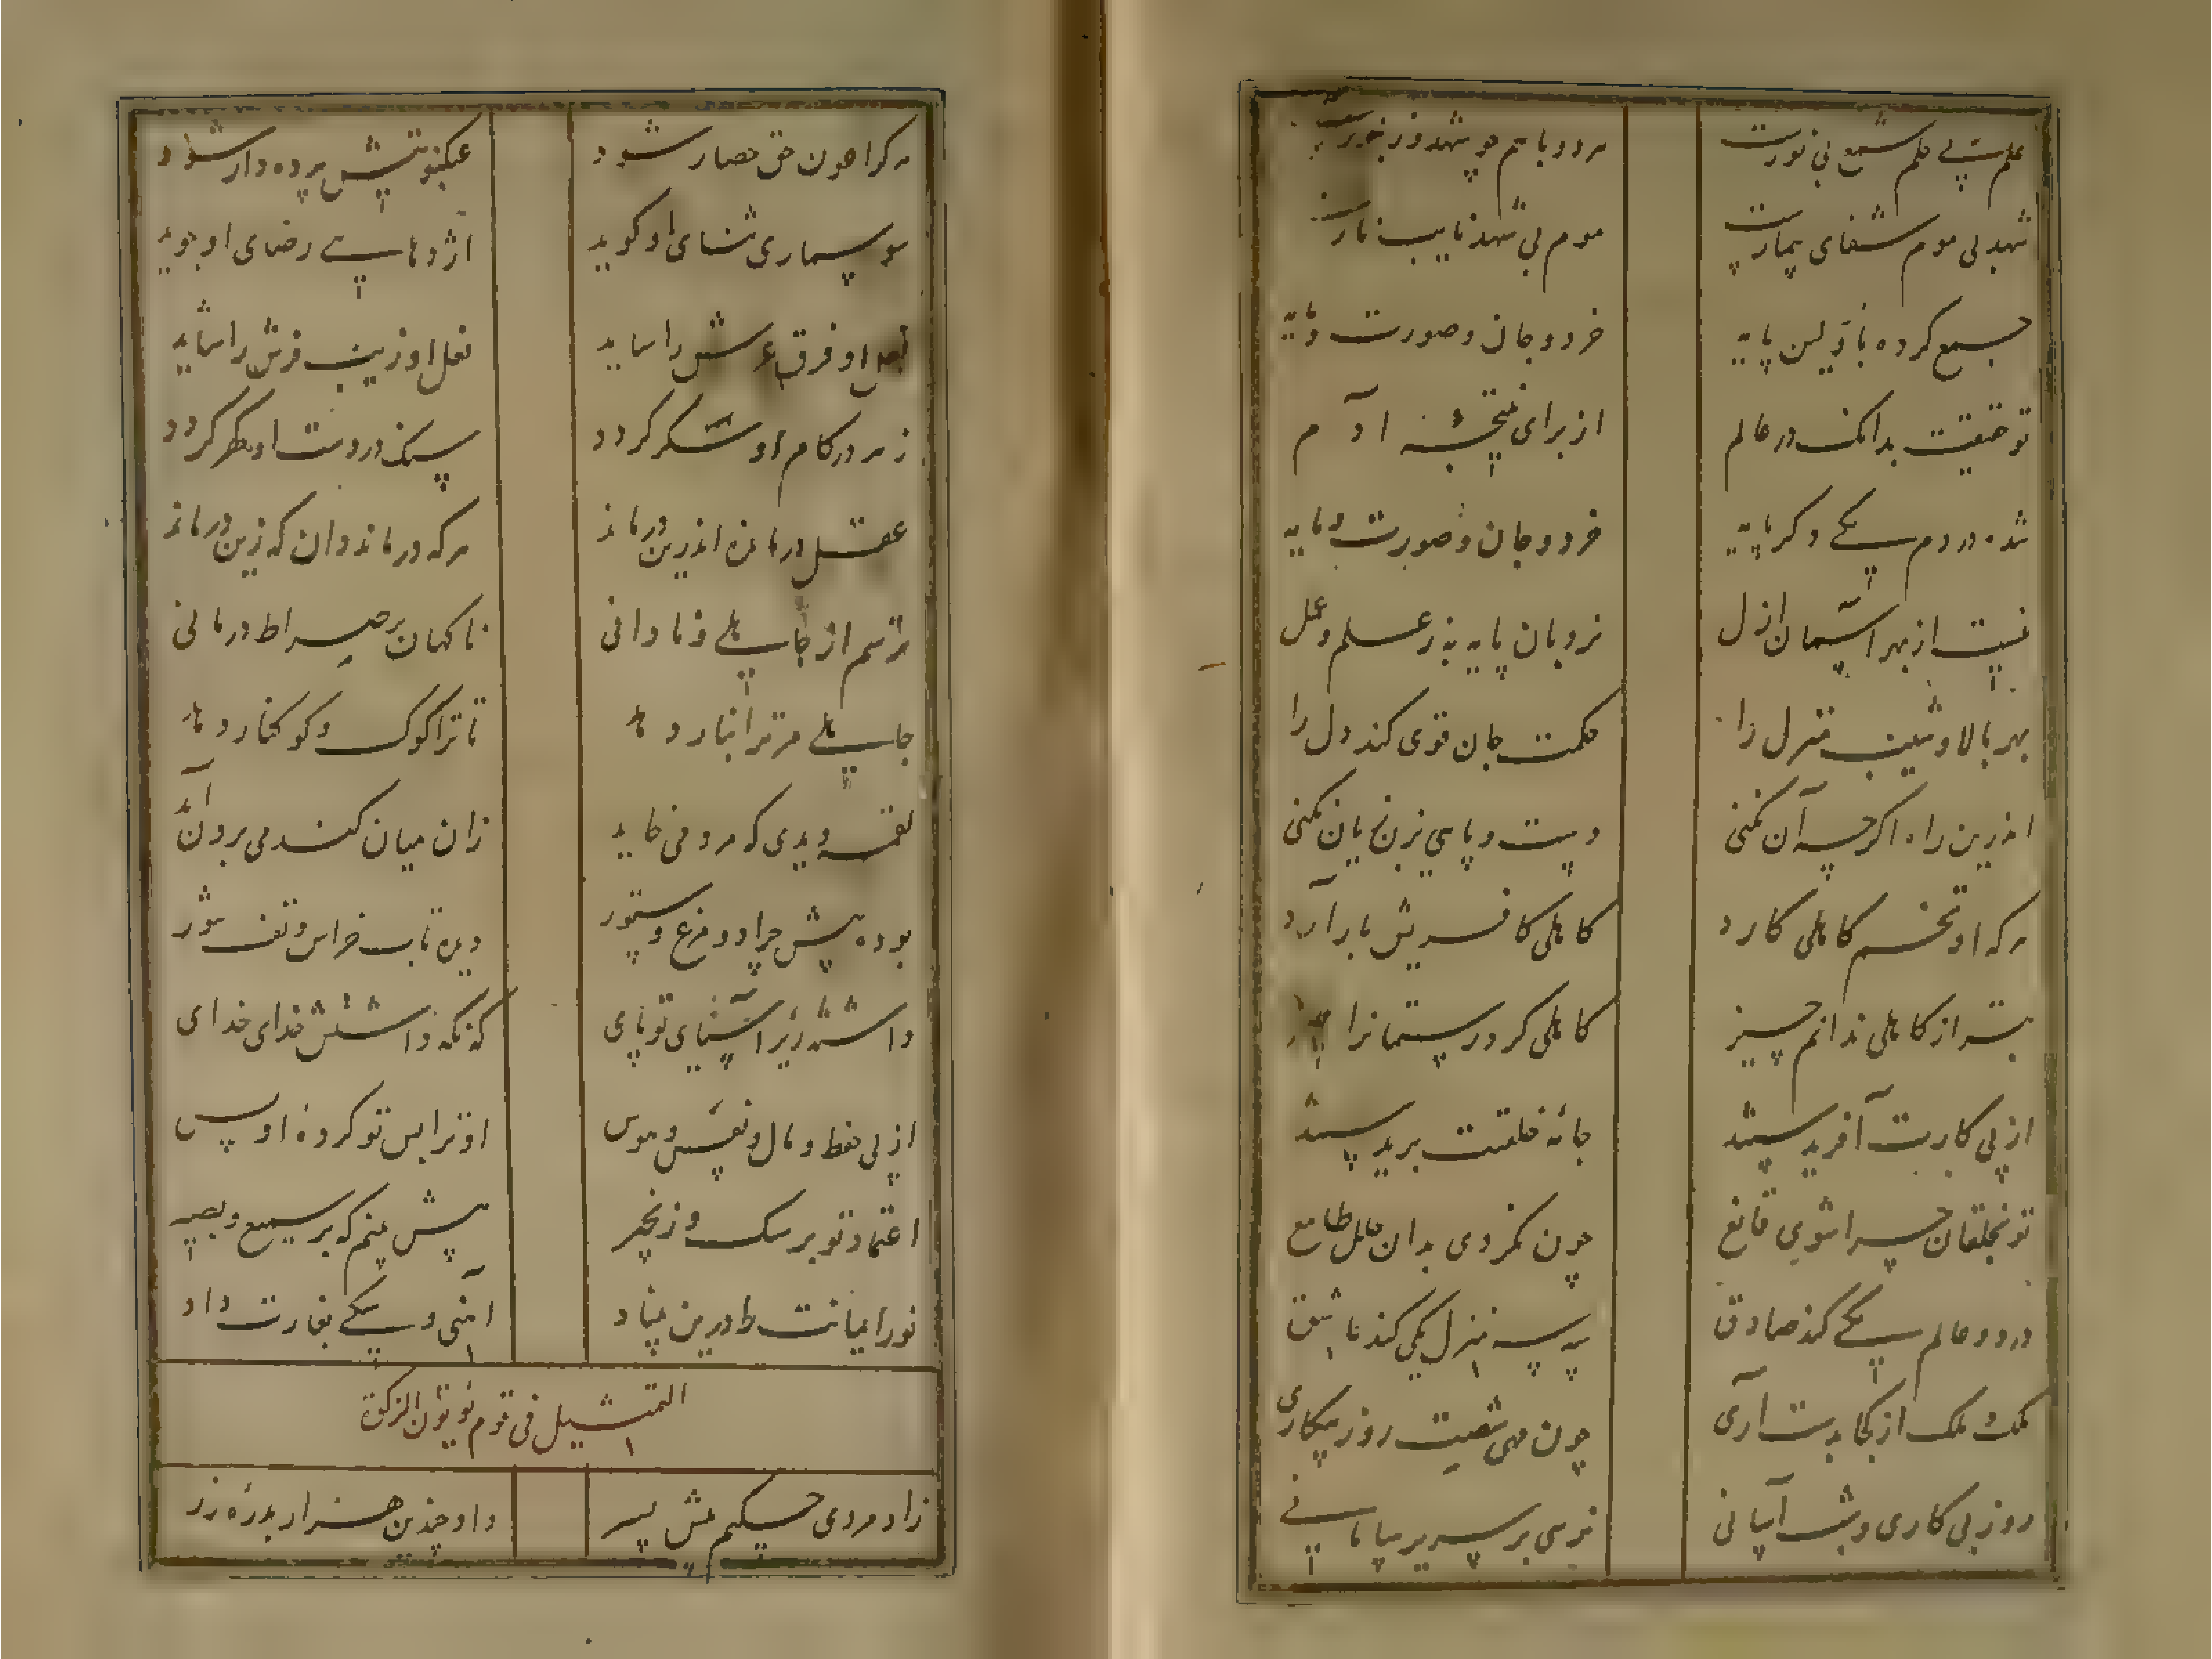 علمت بی حلم شمع بی نورست
هر دو با هم چو شهد زنبورست
شهد بی موم شفای بیمارست
موم بی شهد نایب نارست
جمع کرده
خرد و جان و صورت و مایه
تو حقیقت بدانک در عالم
از برای نتیجهٔ آدم
شده در دم یکی دگر پایه
خرد و جان و صورت و مایه
نیست از بهر آسمان ازل
نردبان پایه به ز علم و عمل
بهر بالا و شیب منزل را
حکمت جان قوی کند دل را
اندرین راه اگرچه آن نکنی
دست و پایی بزن زیان نکنی
هر که او تخم کاهلی کارد
کاهلی کافریش بار آرد
بتر از کاهلی ندانم چیز
کاهلی کرد رستمانرا حیز
از پی کارت آفریدستند
جامه خلقتت بریدستند
تو بخلقان چرا شوی قانع
چون نگردی بدان حلل طامع
در دو عالم یکی کند صادق
سه منزل یکی کند عاشق
ملک و ملک از کجا بدست آری
چون مهی شصت روز بیکاری
روز بی کاری و شب آسانی
نرسی بر سریر ساسانی
هر کرا عون حق حصار شود
عنکبوتیش پرده دار شود
سوسماری ثنای او گوید
اژدهایی رضای او جوید
نعل او فرق عرش را ساید
لعل او زیب فرش را شاید
زهر در کام او شکر گردد
سنگ در دست او گهر گردد
عقل درمانده اندرین درماند
هر که درماند دان که زین درماند
ترسم از جاهلی و نادانی
ناگهان بر صراط درمانی
جاهلی مر ترا بنار دهد
تا ترا کوک و کوکنار دهد
لقمه دیدی که مرد می خاید
زان میان گندمی برون آید
بوده پیش جراد و مرغ و ستور
دیده تاب خراس و تف تنور
داشته زیر آسیای تو پای
که نگه داشتش خدای خدای
از پی حفظ و مال و نفس و هوس
او ترا بس تو کرده او پس
اعتماد تو بر سگ و زنجیر
پیش بینم که بر سمیع و بصیر
نور ایمانت را درین بنیاد
آهنی و سگی بغارت داد
التمثیل فی قوم یؤتون الزکوة
زاد مردی حکیم پیش پسر
داد چندین هزار بدرهٔ زر